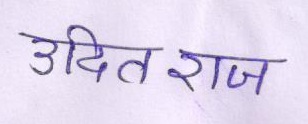 उदित राज